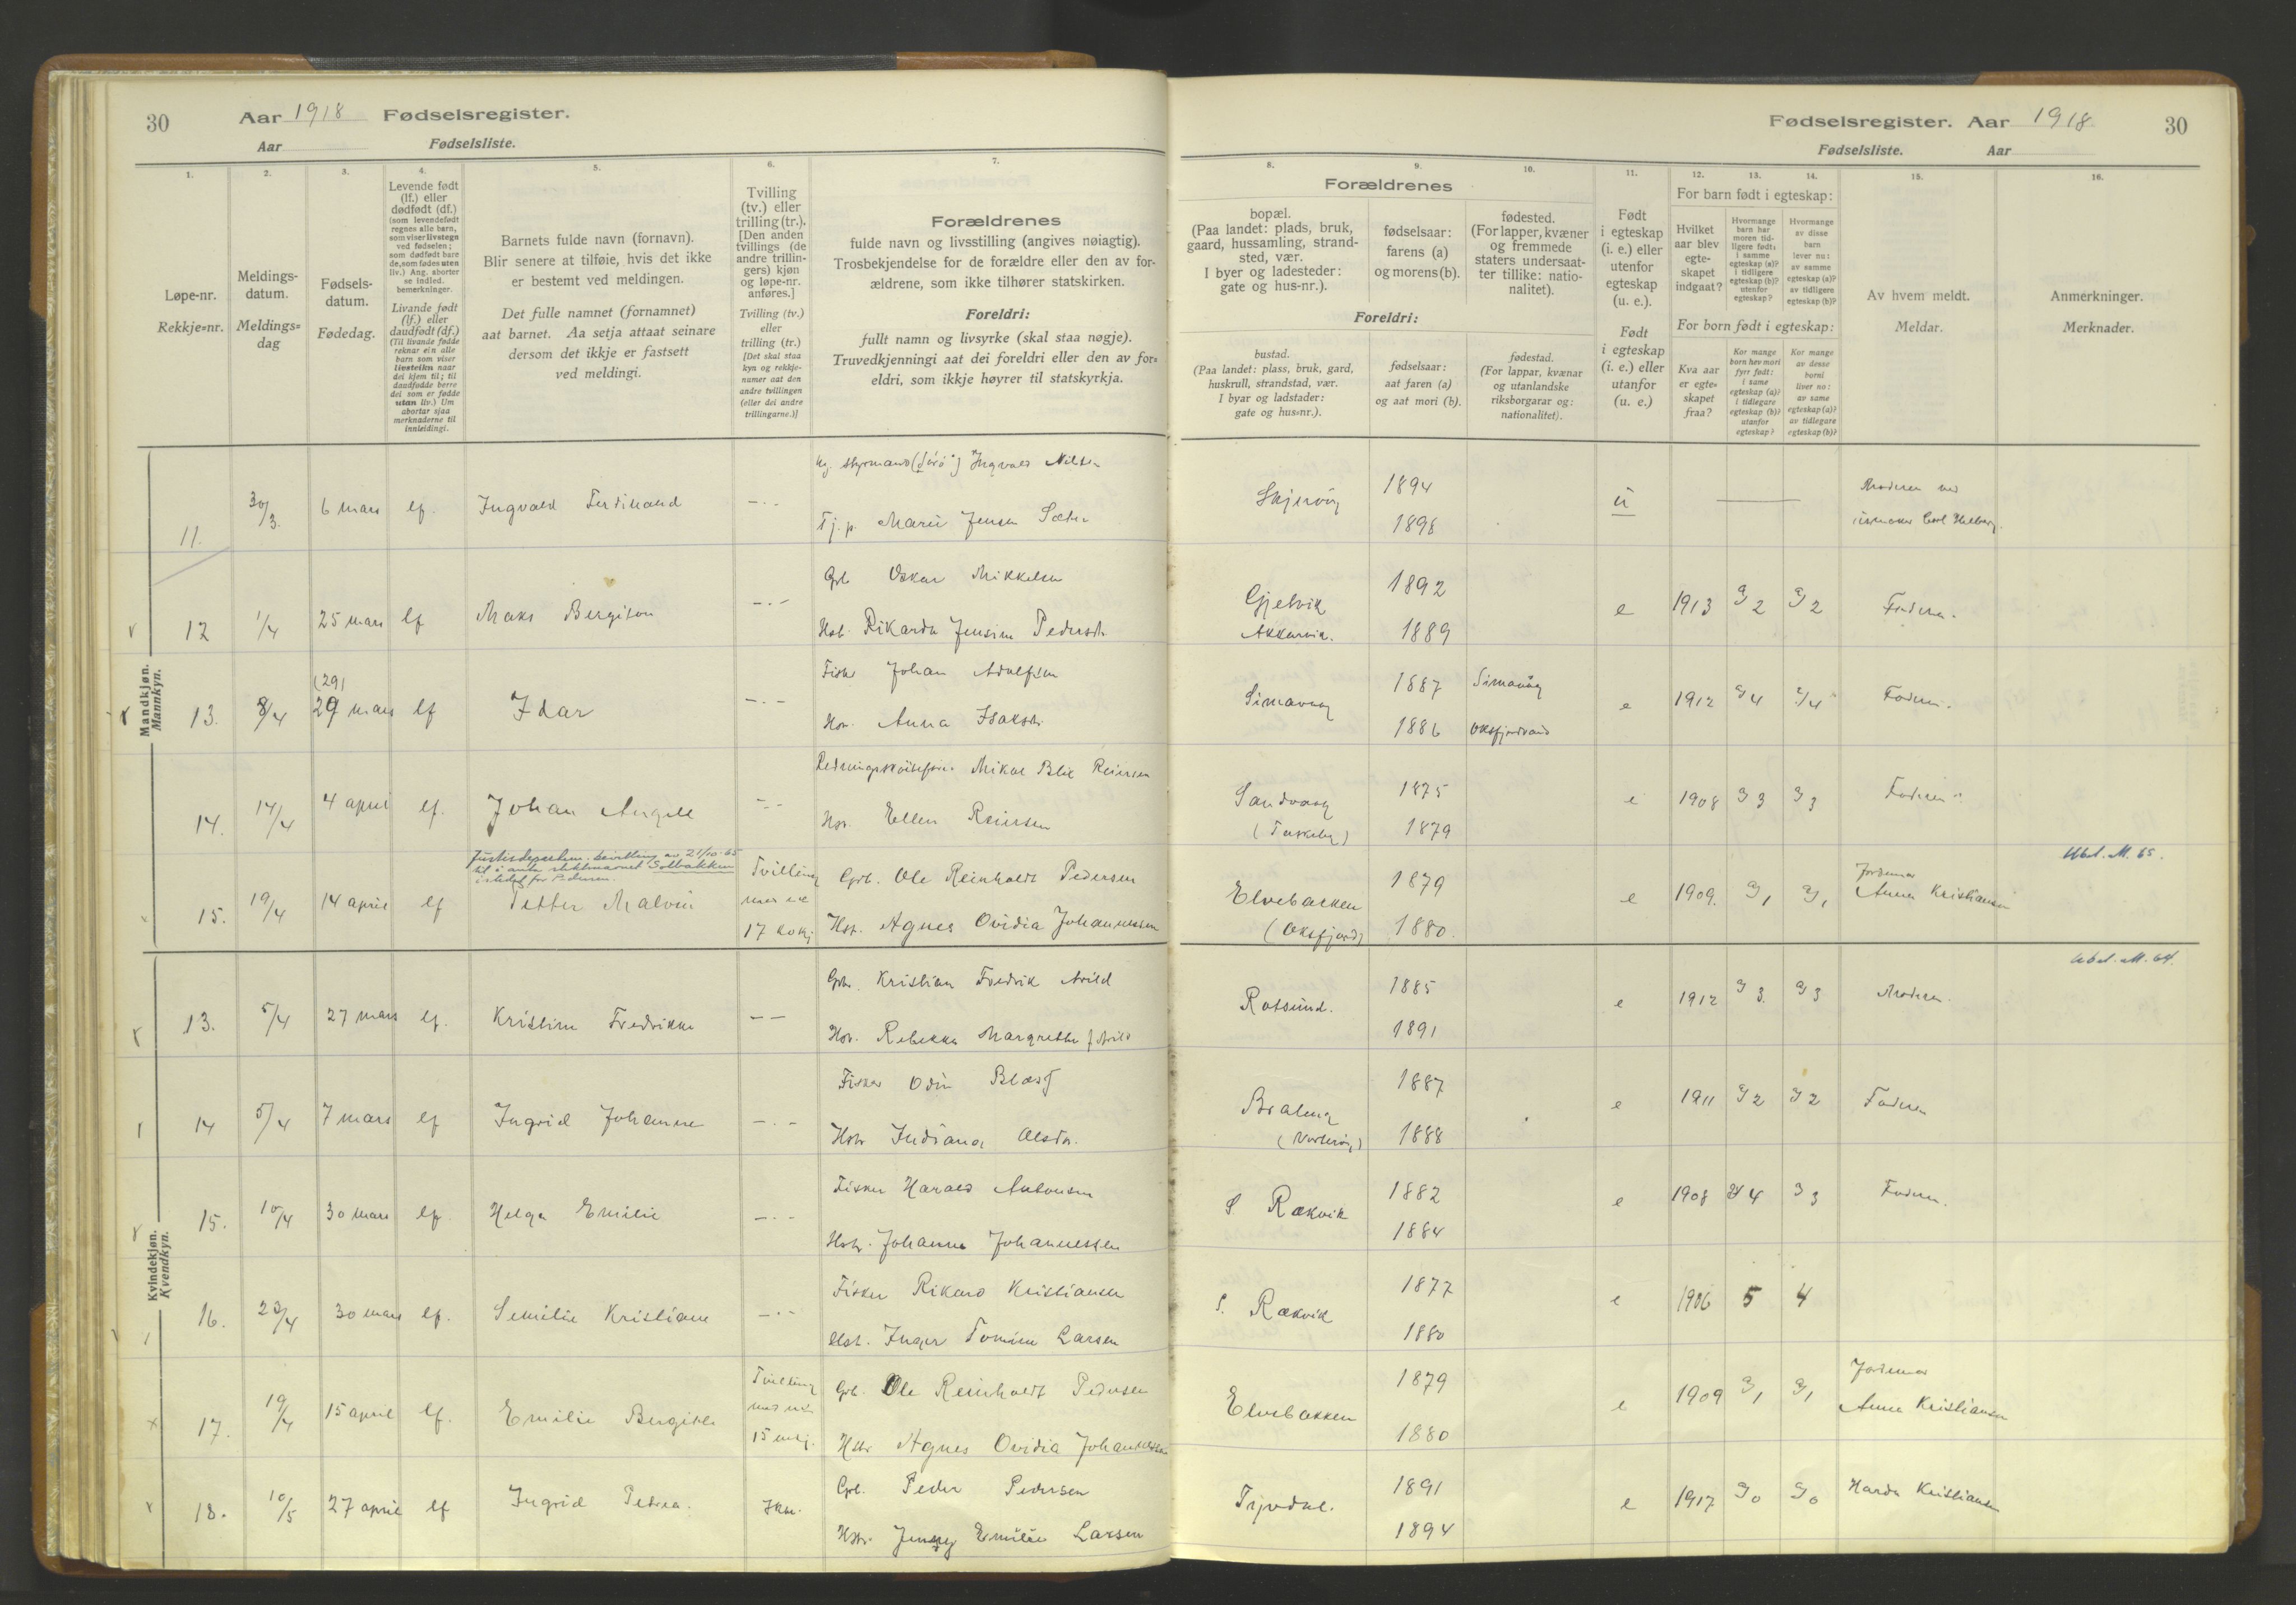 30
Aar 1918 Fødselsregister.
Aar Fødselsliste.
1.
2.
3.
4.
5.
6.
7.
Løpe-nr.
Rekkje=nr.
Meldings-
datum.
Meldings=
dag
Fødsels-
datum.
Fødedag.
Levende født
(lf.) eller
dødfødt (df.)
(som levendefødt
regnes alle barn,
som viser livstegn
ved fødselen;
som dødfødt bare
de, som fødes uten
liv.) Ang. aborter
se indled.
bemerkninger.
Livande født
(lf.) eller
daudfødt (df.)
(Til livande fødde
reknar ein alle
barn som viser
livsteikn naar
dei kjem til; til
daudfødde berre
dei som er fødde
utan liv.) Um
abortar sjaa
merknaderne til
innleidingi.
Barnets fulde navn (fornavn).
Blir senere at tilføie, hvis det ikke
er bestemt ved meldingen.
Det fulle namnet (fornamnet)
aat barnet. Aa setja attaat seinare
dersom det ikkje er fastsett
ved meldingi.
Tvilling
(tv.) eller
trilling (tr.).
[Den anden
tvillings (de
andre trillin-
gers) kjøn
og løpe-nr.
anføres.]
Tvilling (tv.)
eller
trilling (tr.)
[Det skal staa
kyn og rekkje-
numer aat den
andre tvillingen
(eller dei andre
trillingarne.)]
Forældrenes
fulde navn og livsstilling (angives nøiagtig).
Trosbekjendelse for de forældre eller den av for-
ældrene, som ikke tilhører statskirken.
Foreldri:
fullt namn og livsyrke (skal staa nøgje).
Truvedkjenningi aat dei foreldri eller den av for=
eldri, som ikkje høyrer til statskyrkja.
Mandkjøn.
Mannkyn.
11. 30/3. 6 mars lf. Ingvald Ferdinand Ingvald Nilsen
Tj. p. Marie Jensen
12 1/4 25 mars lf Maks Bergiton Oskar Mikkelsen
Rikarda Jensine Pedersdt
13. 8/4 (29) 29 mars lf Idar Johan Adolfsen
Anna Isaksdt.
14. 14/4 4 april lf. Johan Angell Mikal Blix Reiersen
Ellen Reiersen
Justisdepartem. bevilling av 21/10-65
til å anta slektsnavnet Solbakken
istedet for Pedersen.
15. 19/4 14 april lf Petter Malvin Tvilling Ole Reinholdt Pedersen
17 Agnes Ovidia Johannessen
Kvindekjøn.
Kvendkyn.
13. 5/4 27 mars lf. Kristine Fredrikke Kristian Fredrik Arild
Rebekka Margrethe f Arild
14 5/4 7 mars lf Ingrid Johanne Fisker Odin
Indiana Olsdt.
15. 10/4 30 mars lf. Helga Emilie Fisker Harald Antonsen
Johanna Johannessen
16. 23/4 30 mars lf. Semilie Kristiane Fisker Rikard Kristiansen
Inger Tomine Larsen
17. 19/4 15 april lf. Emilie Bergitte Tvilling Ole Reinholdt Pedersen
15 Agnes Ovidia Johannessen
18. 10/5 27 april lf Ingrid Petrea. Peder Pedersen
Jenny Emilie Larsen
Fødselsregister. Aar 1918
30
Fødselsliste. Aar
8.
9.
10.
11.
12.
13.
14.
15.
16.
Forældrenes
bopæl.
(Paa landet: plads, bruk,
gaard, hussamling, strand-
sted, vær.
I byer og ladesteder:
gate og hus-nr.).
fødselsaar:
farens (a)
og morens (b).
fødested.
(For lapper, kvæner
og fremmede
staters undersaat-
ter tillike: natio-
nalitet).
Foreldri:
bustad.
(Paa landet: plass, bruk, gard,
huskrull, strandstad, vær.
I byar og ladstader:
gate og hus=nr.).
fødselsaar:
aat faren (a)
og aat mori (b).
fødestad.
(For lappar, kvænar
og utanlandske
riksborgarar og:
nationalitet).
Født
i egteskap
(i. e.) eller
utenfor
egteskap
(u. e.).
Født
i egteskap
(i. e.) eller
utanfor
(u. e.)
For barn født i egteskap:
Hvilket
aar blev
egte-
skapet
indgaat?
Hvormange
barn har
moren tid-
ligere født:
i samme
egteskap (a)?
i tidligere
egteskap (b)?
utenfor
egteskap?
Hvormange
av disse
barn
lever nu:
av samme
egteskap (a)?
av tidligere
egteskap (b)?
For born født i egteskap:
Kva aar
er egte=
skapet
fraa?
Kor mange
born hev mori
fyrr født:
i same
egteskap (a)?
i tidlegare
egteskap (b)?
utanfor
egteskap?
Kor mange
av desse
borni
liver no:
av same
egteskap (a)?
av tidlegare
egteskap (b)?
Av hvem meldt.
Meldar.
Anmerkninger.
Merknader.
Skjervøy 1894 u Moderen ved
1898
Gjelvik 1892 e 1913 a/2 a/2 Faderen.
Akkarvik. 1889
Simavaag 1887 Simavaag e 1912 a/4 a/4 Faderen.
1886 Oksfjordvand
Sandvaag 1875 e 1908 a/3 a/3 Faderen
1879
Elvebakken 1879 e 1909. a/1 a/1 Jordemor
(Oksfjord) 1880. Anna Kristiansen
Rotsund. 1885 e 1912 a/3. a/3 Moderen.
1891
1887 e 1911 a/2 a/2 Faderen
1888
S Rækvik 1882 e 1908 4 3 Faderen.
1884
S. Rækvik 1877 e 1906 5 4
1880
Elvebakken 1879 e 1909 a/1 a/1 Jordemor
1880 Anna Kristiansen
1891 e 1917 a/0 a/0 Kristiansen
1894